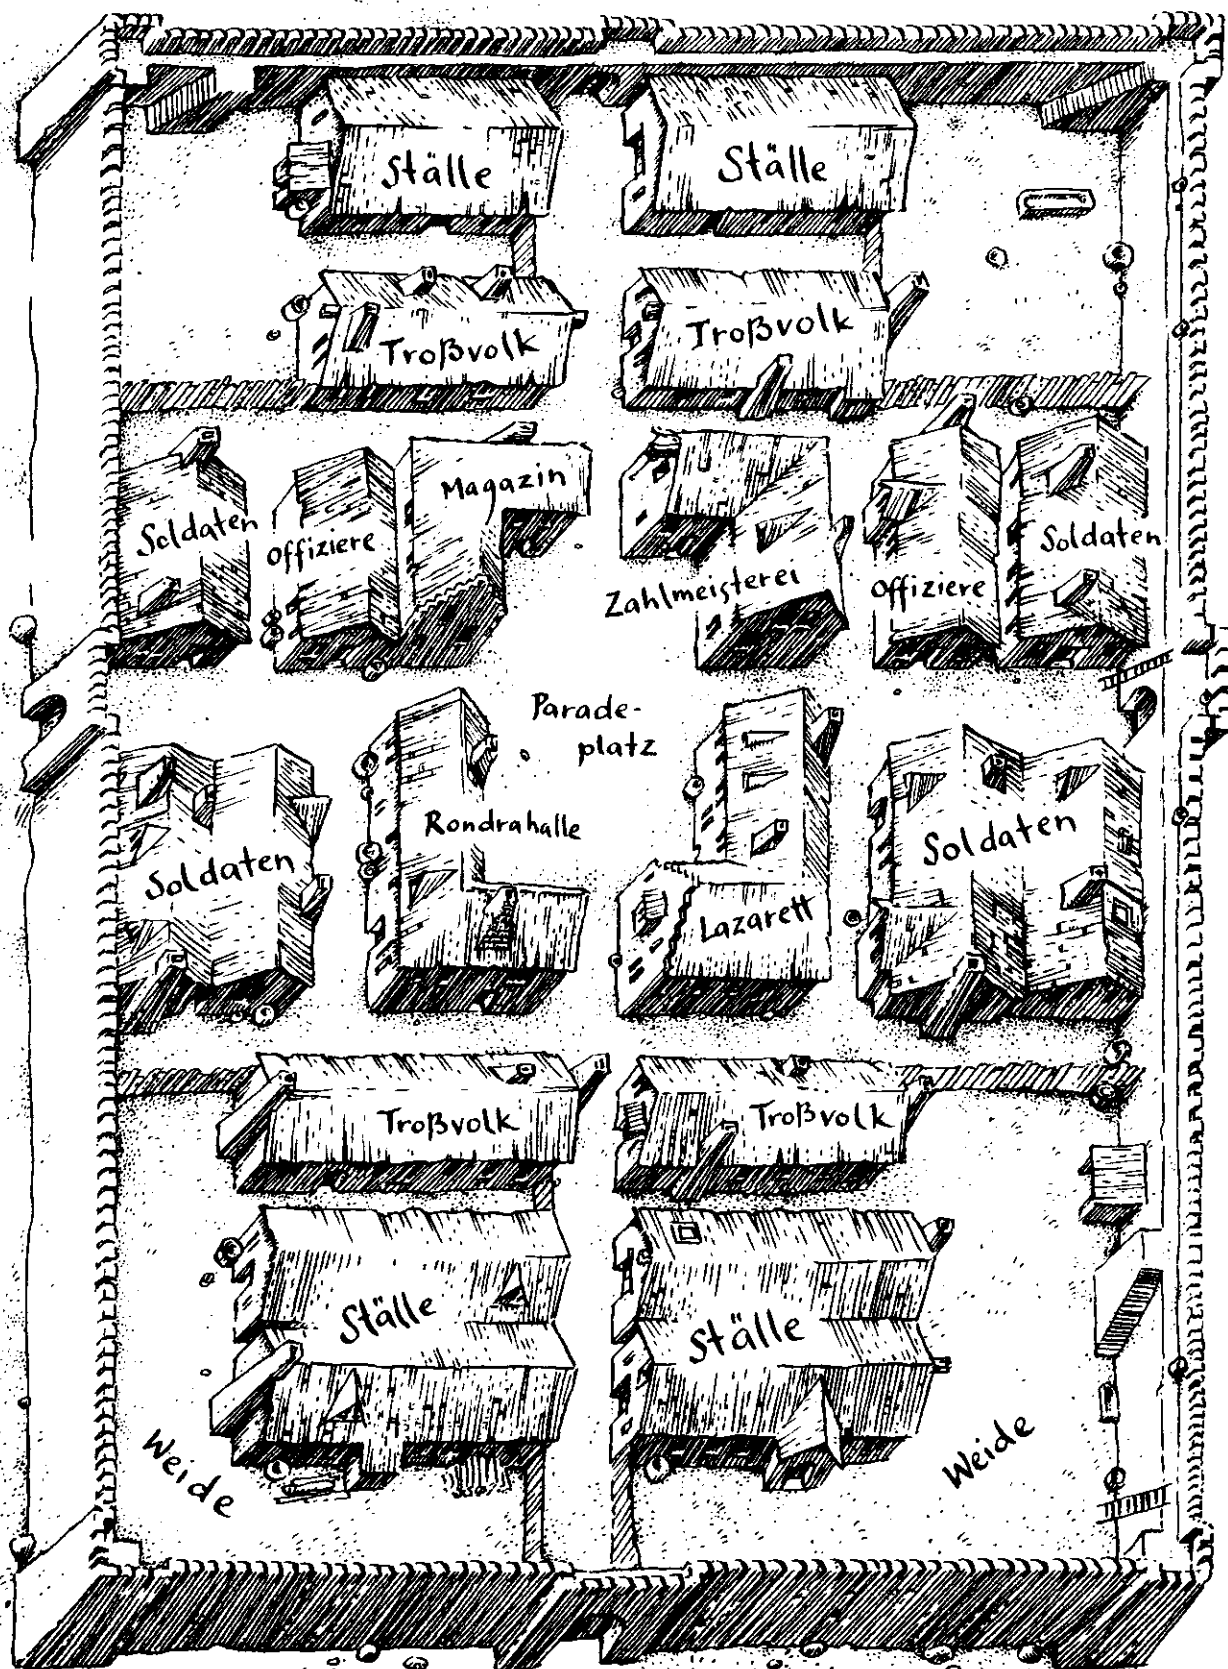 Ställe
Ställe
Troßvolk
Troßvolk
Soldaten
Offiziere
Magazin
Zahlmeisterei
Offiziere
Soldaten
Parade-
platz
Soldaten
Rondrahalle
Lazarett
Soldaten
Troßvolk
Troßvolk
Ställe
Ställe
Weide
Weide